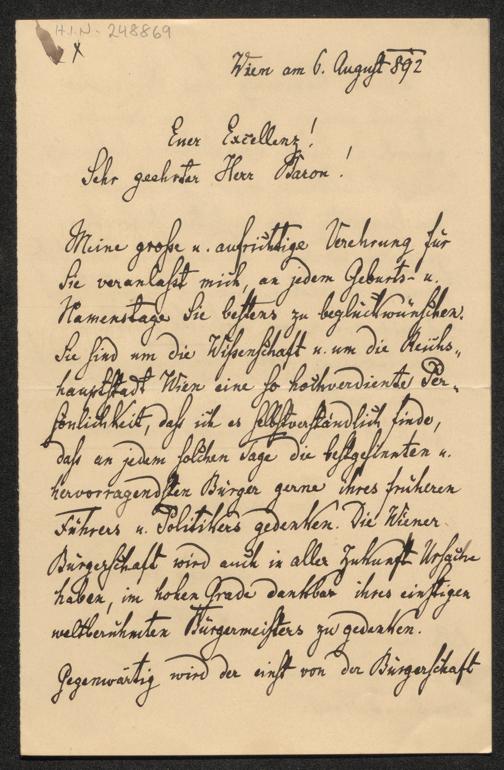 H.I.N.- 248869
x
Wien am 6. August 892
Euer Excellenz!
Sehr geehrter Herr Baron!
Meine große u. aufrichtige Verehrung für
Sie veranlaßt mich, an jedem Geburts- u.
Namenstage Sie bestens zu beglückwünschen.
Sie sind um die Wissenschaft u. um die Reichs-
hauptstadt Wien eine so hochverdiente Per-
sönlichkeit, daß ich es selbstverständlich finde,
daß an jedem solchen Tage die bestgesinnten u.
hervorragendsten Bürger gerne ihres früheren
Führers u. Politikers gedenken. Die Wiener
Bürgerschaft wird auch in aller Zukunft Ursache
haben, im hohen Grade dankbar ihres einstigen
weltberühmten Bürgermeisters zu gedenken.
Gegenwärtig wird der einst von der Bürgerschaft